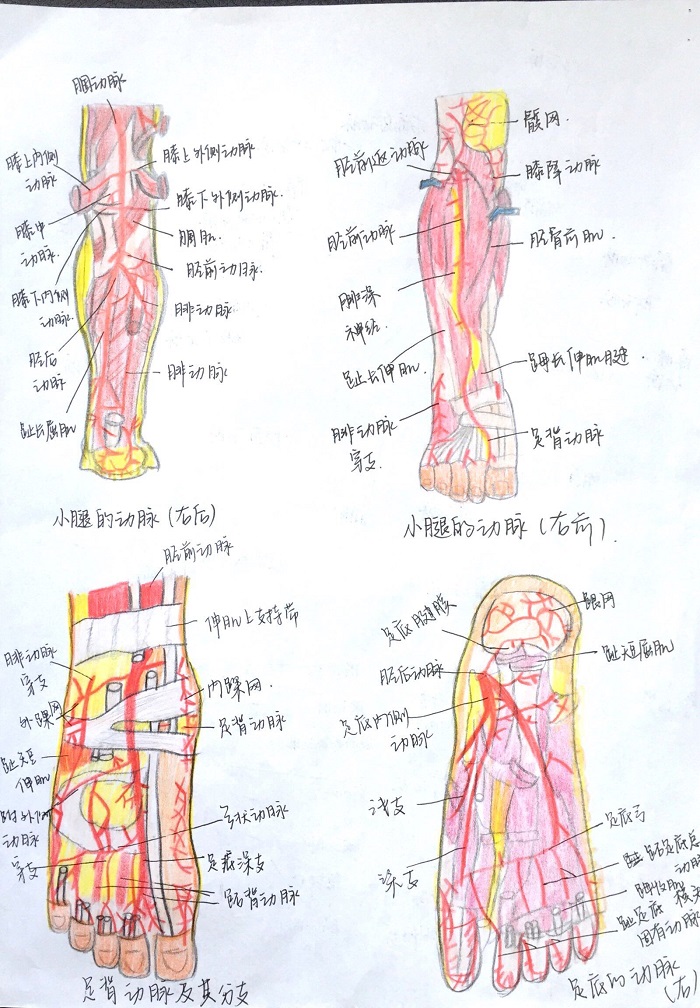 腘动脉
膝上内侧
动脉
膝上外侧动脉
膝下外侧动脉
膝中
动脉
腘肌
胫前动脉
膝下内侧
动脉
腓动脉
胫后
动脉
腓动脉
趾长屈肌
小腿的动脉(右后)
髌网
胫前返动脉
膝降动脉
胫前动脉
胫骨前肌
腓深
神经
趾长伸肌
𧿹长伸肌腱
腓动脉
穿支
足背动脉
小腿的动脉(右前)
胫前动脉
伸肌上支持带
腓动脉
穿支
内踝网
外踝网
足背动脉
趾短
伸肌
跗外侧
动脉
弓状动脉
穿支
足底深支
跖背动脉
足背动脉及其分支
跟网
足底腱膜
趾短屈肌
胫后动脉
足底内侧
动脉
浅支
足底弓
深支
跖足底总
动脉
趾足底
固有动脉
足底的动脉
(右)